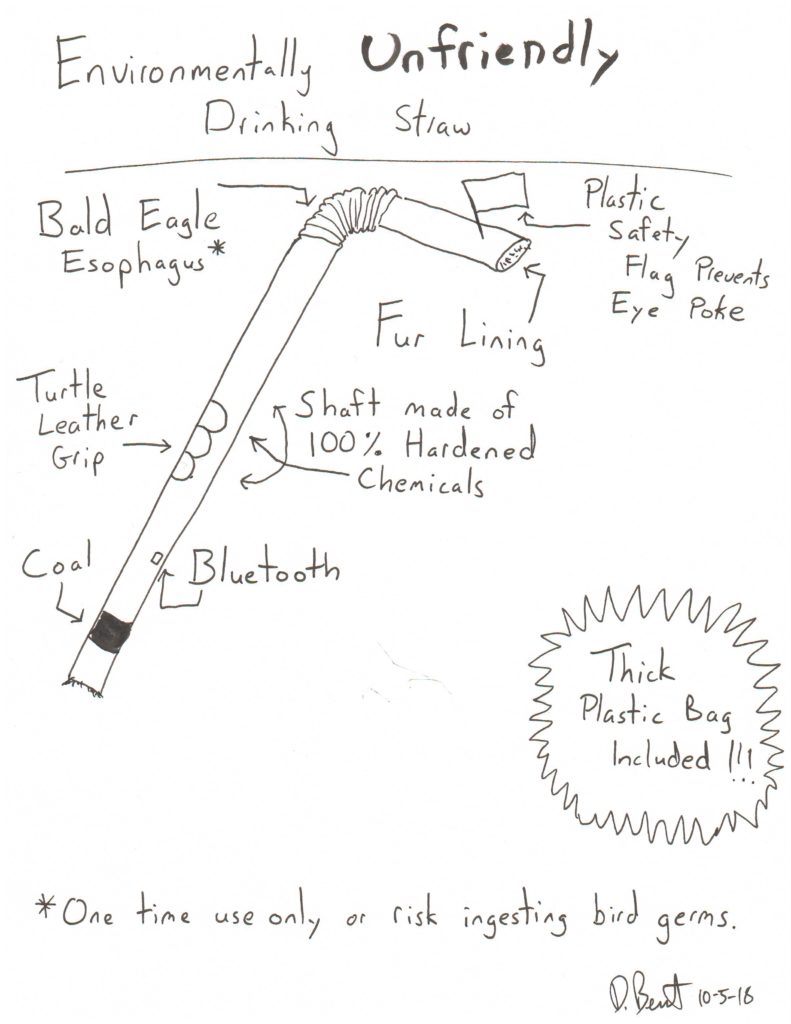 Environmentally Unfriendly
Drinking Straw
Bald Eagle
Esophagus*
Plastic
Safety
Flag Prevents
Eye Poke
Fur Lining
Turtle
Leather
Grip
Shaft made of
100% Hardened
Chemicals
Coal
Bluetooth
Thick
Plastic Bag
Included !!!
*One time use only or risk ingesting bird germs.
D. Bent 10-5-18